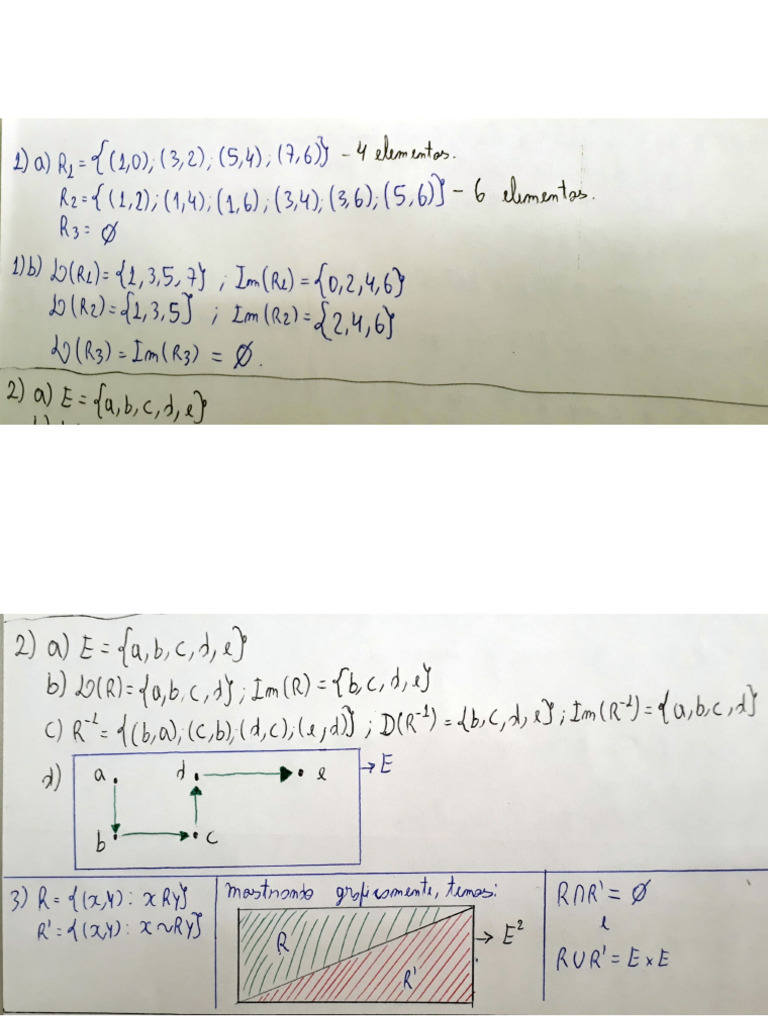 1) a) R₁ = {(1,0); (3,2); (5,4); (7,6)} - 4 elementos.
R₂ = {(1,2); (1,4); (1,6); (3,4); (3,6); (5,6)} - 6 elementos.
R₃ = ∅
1) b) D(R₁) = {1,3,5,7} ; Im(R₁) = {0,2,4,6}
D(R₂) = {1,3,5} ; Im(R₂) = {2,4,6}
D(R₃) = Im(R₃) = ∅.
2) a) E = {a,b,c,d,e}
2) a) E = {a,b,c,d,e}
b) D(R) = {a,b,c,d} ; Im(R) = {b,c,d,e}
c) R⁻¹ = {(b,a); (c,b); (d,c); (e,d)} ; D(R⁻¹) = {b,c,d,e} ; Im(R⁻¹) = {a,b,c,d}
d) a d e → E
b c
3) R = {(x,y): x R y}
R' = {(x,y): x ~R y}
mostrando graficamente, temos:
R
R'
→ E²
R∩R' = ∅
e
R∪R' = E×E